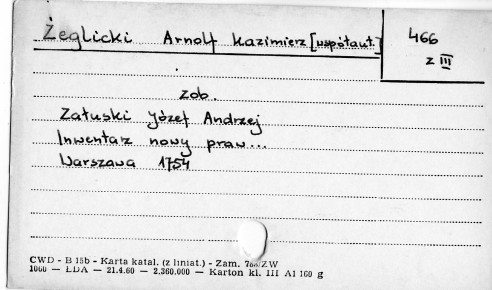 Żeglicki Arnolf Kazimierz [współaut.]
466
z III
zob.
Załuski Józef Andrzej
Inwentarz nowy praw...
Warszawa 1754
CWD - B 15b - Karta katal. (z liniat.) - Zam. ZW
1000 — LDA — 21.4.60 — 2.360.000 — Karton kl. III A1 160 g